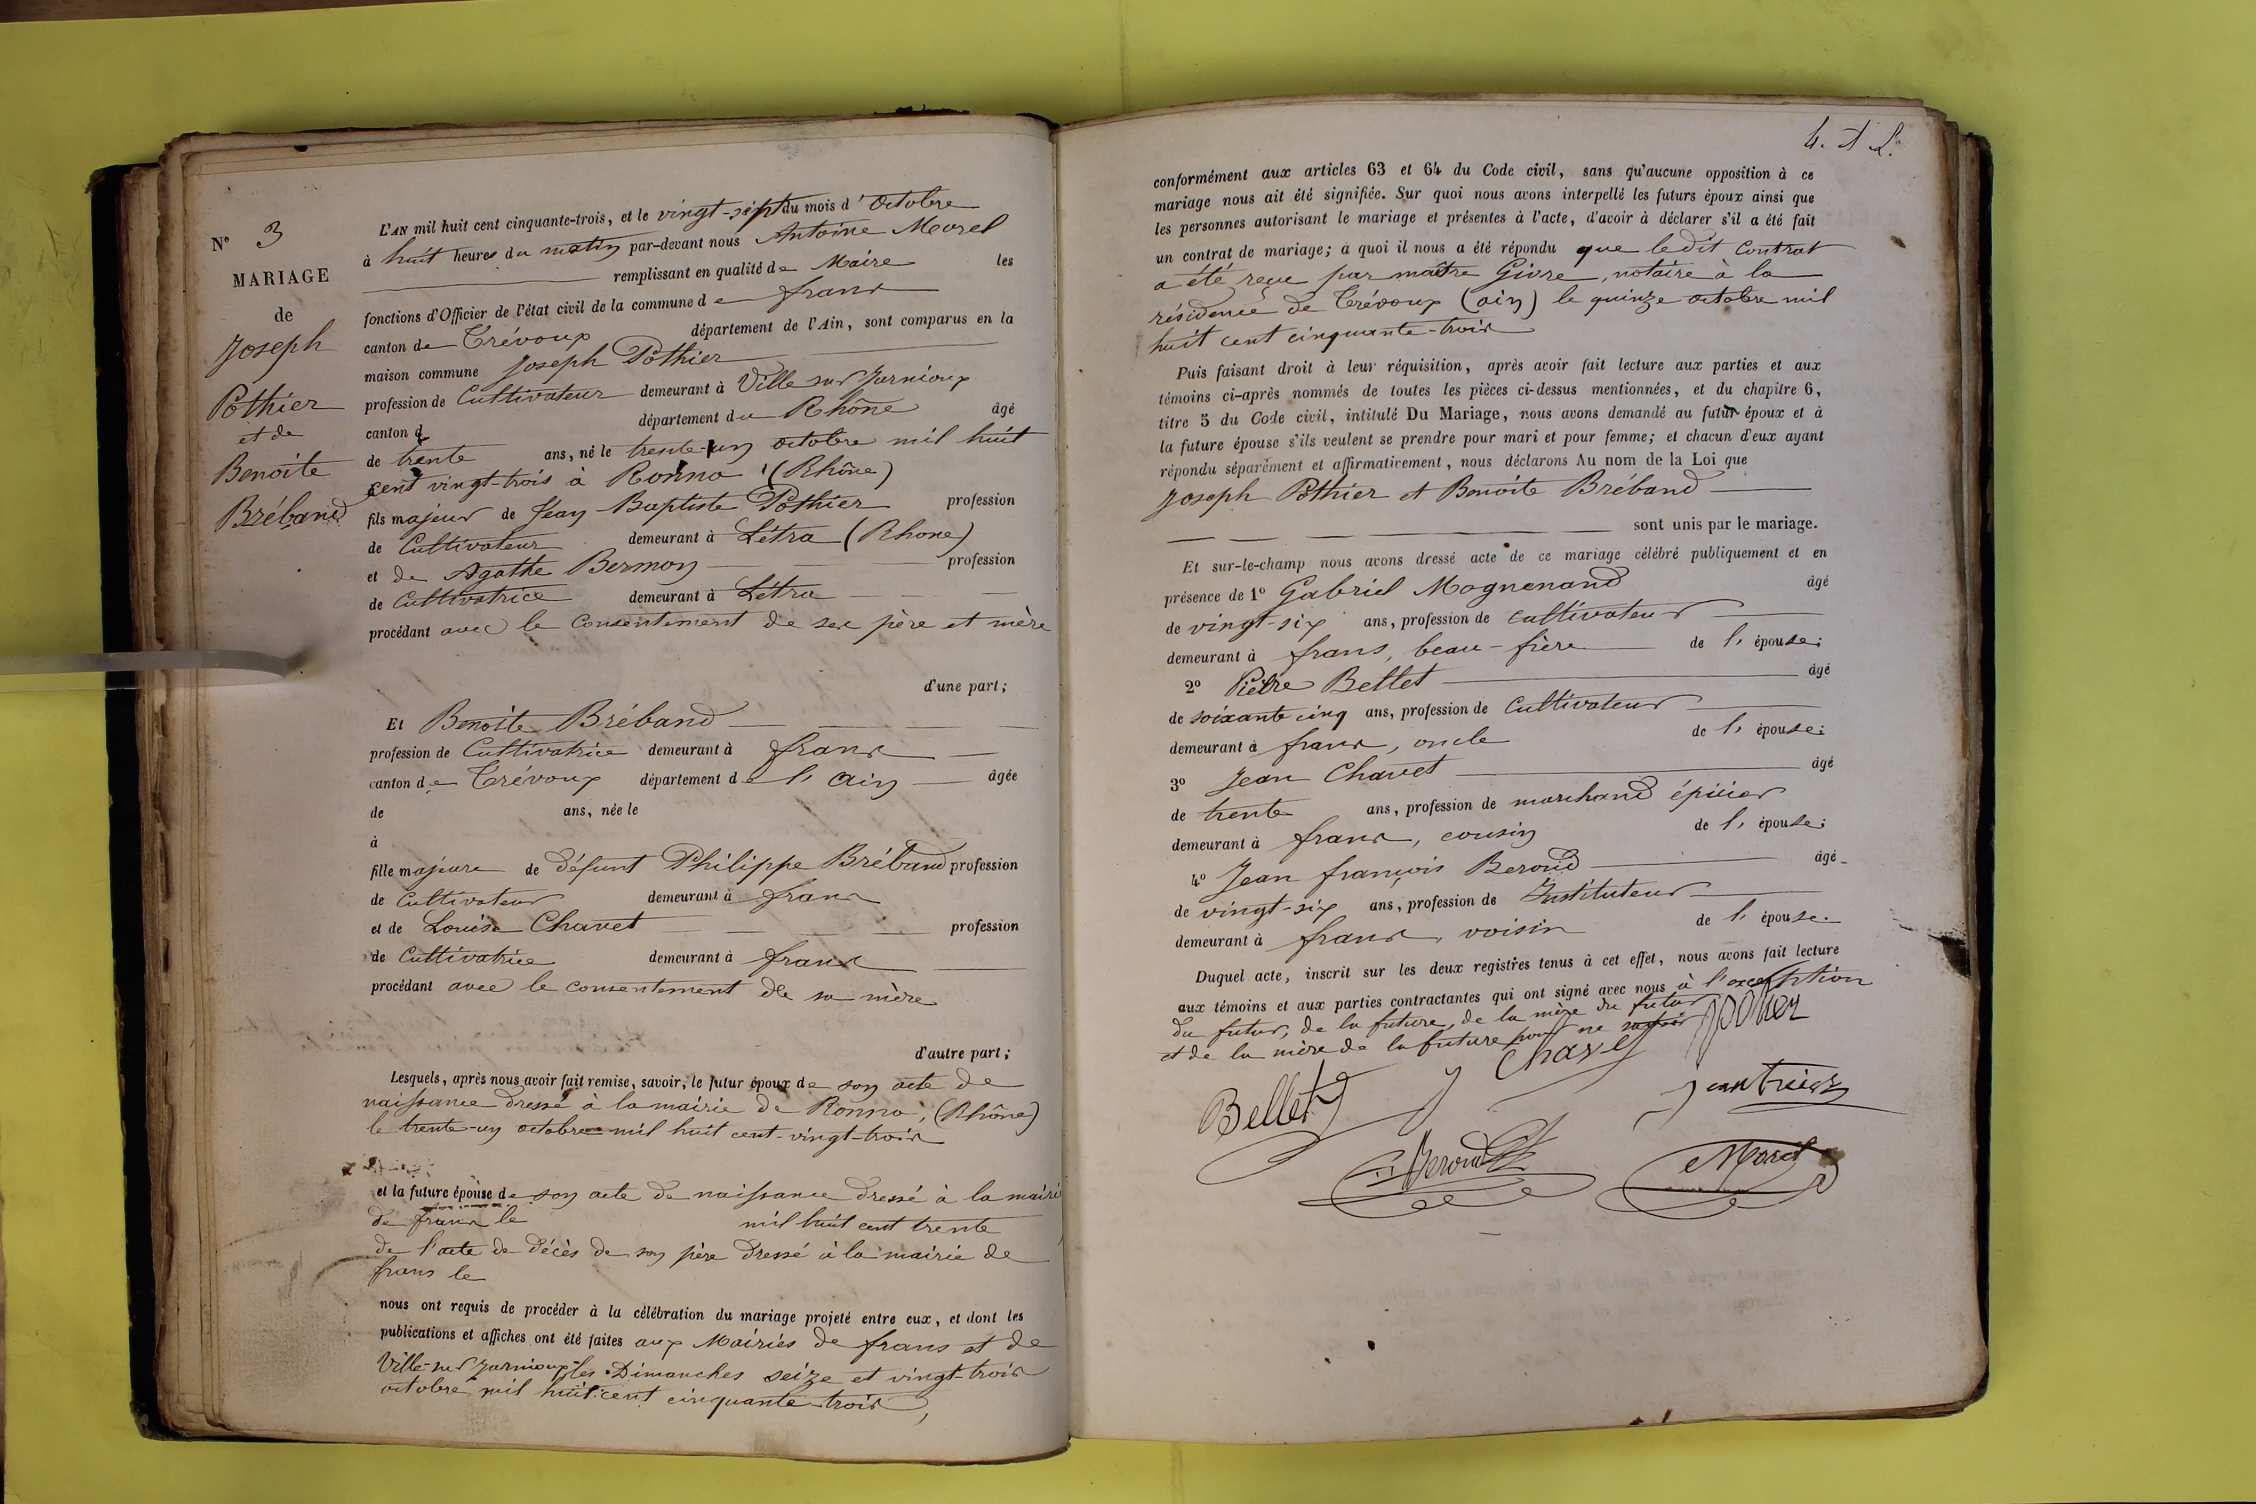 N° 3
MARIAGE
de
Joseph
Pothier
et de
Benoite
Bréband
L'AN mil huit cent cinquante-trois, et le vingt-sept du mois d'Octobre
à huit heures du matin par-devant nous Antoine Morel
remplissant en qualité de Maire les
fonctions d'Officier de l'état civil de la commune de frans
canton de Trévoux département de l'Ain, sont comparus en la
maison commune Joseph Pothier
profession de Cultivateur demeurant à Ville sur Jarnioux
canton d département du Rhône âgé
de trente ans, né le trente-un octobre mil huit
cent vingt-trois à Ronno (Rhône)
fils majeur de Jean Baptiste Pothier profession
de Cultivateur demeurant à Létra (Rhone)
et de Agathe Bermon profession
de Cultivatrice demeurant à Létra
procédant avec le consentement de ses père et mère
d'une part;
Et Benoite Bréband
profession de Cultivatrice demeurant à frans
canton de Trévoux département de l'Ain âgée
de ans, née le
à
fille majeure de défunt Philippe Bréband profession
de Cultivateur demeurant à frans
et de Louise Chavet profession
de Cultivatrice demeurant à frans
procédant avec le consentement de sa mère
d'autre part;
Lesquels, après nous avoir fait remise, savoir, le futur époux de son acte de
naissance dressé à la mairie de Ronno, (Rhône)
le trente-un octobre mil huit cent-vingt-trois
et la future épouse de son acte de naissance dressé à la mairie
de frans le mil huit cent trente
de l'acte de décès de son père dressé à la mairie de
frans le
nous ont requis de procéder à la célébration du mariage projeté entre eux, et dont les
publications et affiches ont été faites aux Mairies de frans et de
Ville-sur Jarnioux les Dimanches seize et vingt-trois
octobre mil huit cent cinquante trois,
conformément aux articles 63 et 64 du Code civil, sans qu'aucune opposition à ce
mariage nous ait été signifiée. Sur quoi nous avons interpellé les futurs époux ainsi que
les personnes autorisant le mariage et présentes à l'acte, d'avoir à déclarer s'il a été fait
un contrat de mariage; à quoi il nous a été répondu que le dit Contrat
a été reçu par maître Givre, notaire à la
résidence de Trévoux (ain) le quinze octobre mil
huit cent cinquante-trois
Puis faisant droit à leur réquisition, après avoir fait lecture aux parties et aux
témoins ci-après nommés de toutes les pièces ci-dessus mentionnées, et du chapitre 6,
titre 5 du Code civil, intitulé Du Mariage, nous avons demandé au futur époux et à
la future épouse s'ils veulent se prendre pour mari et pour femme; et chacun d'eux ayant
répondu séparément et affirmativement, nous déclarons Au nom de la Loi que
Joseph Pothier et Benoite Bréband
sont unis par le mariage.
Et sur-le-champ nous avons dressé acte de ce mariage célébré publiquement et en
présence de 1° Gabriel Mognenand âgé
de vingt-six ans, profession de cultivateur
demeurant à frans, beau-frère de l'épouse;
2° Pierre Bellet âgé
de soixante cinq ans, profession de Cultivateur
demeurant à frans, oncle de l'épouse;
3° Jean Chavet âgé
de trente ans, profession de marchand épicier
demeurant à frans, cousin de l'épouse;
4° Jean françois Beroud âgé
de vingt-six ans, profession de Instituteur
demeurant à frans, voisin de l'épouse.
Duquel acte, inscrit sur les deux registres tenus à cet effet, nous avons fait lecture
aux témoins et aux parties contractantes qui ont signé avec nous à l'exception
du futur, de la future, de la mère du futur
et de la mère de la future pour ne savoir
Chavet
Bellet
Beroud
Morel